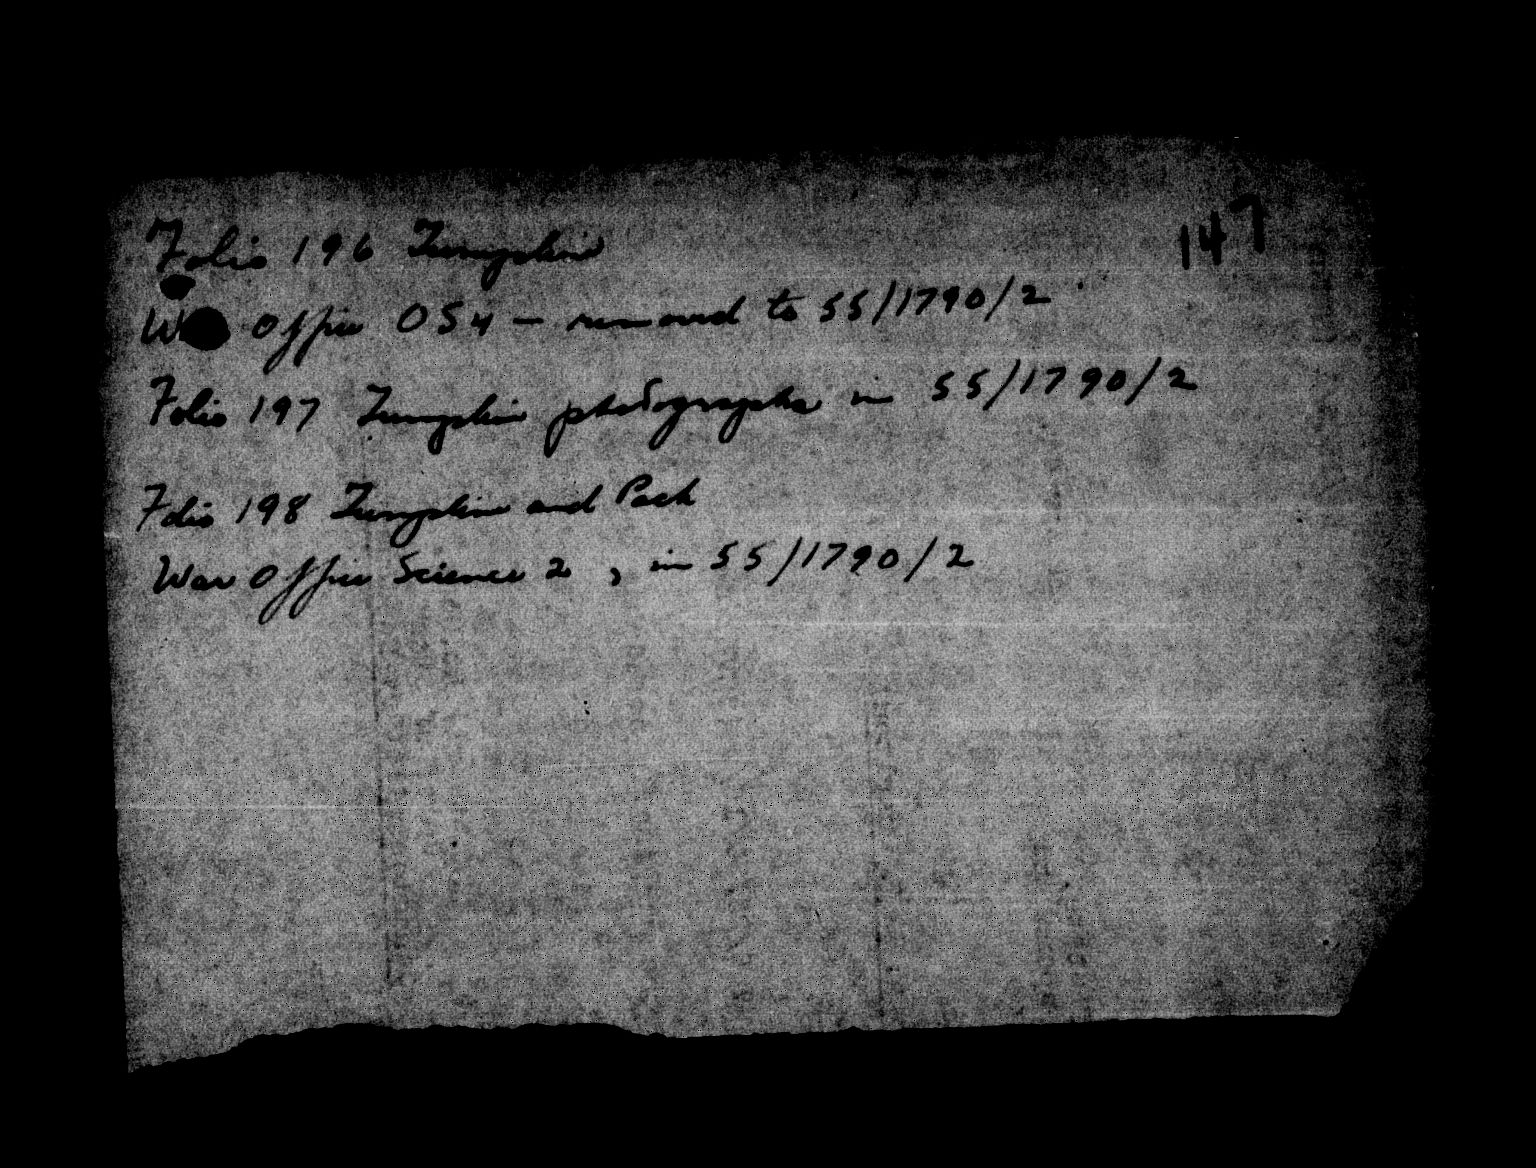 Folio 196 Tumpline
147
W Office OS4 – removed to 55/1790/2.
Folio 197 Tumpline photographs in 55/1790/2
Folio 198 Tumpline and Pack
War Office Science 2, in 55/1790/2